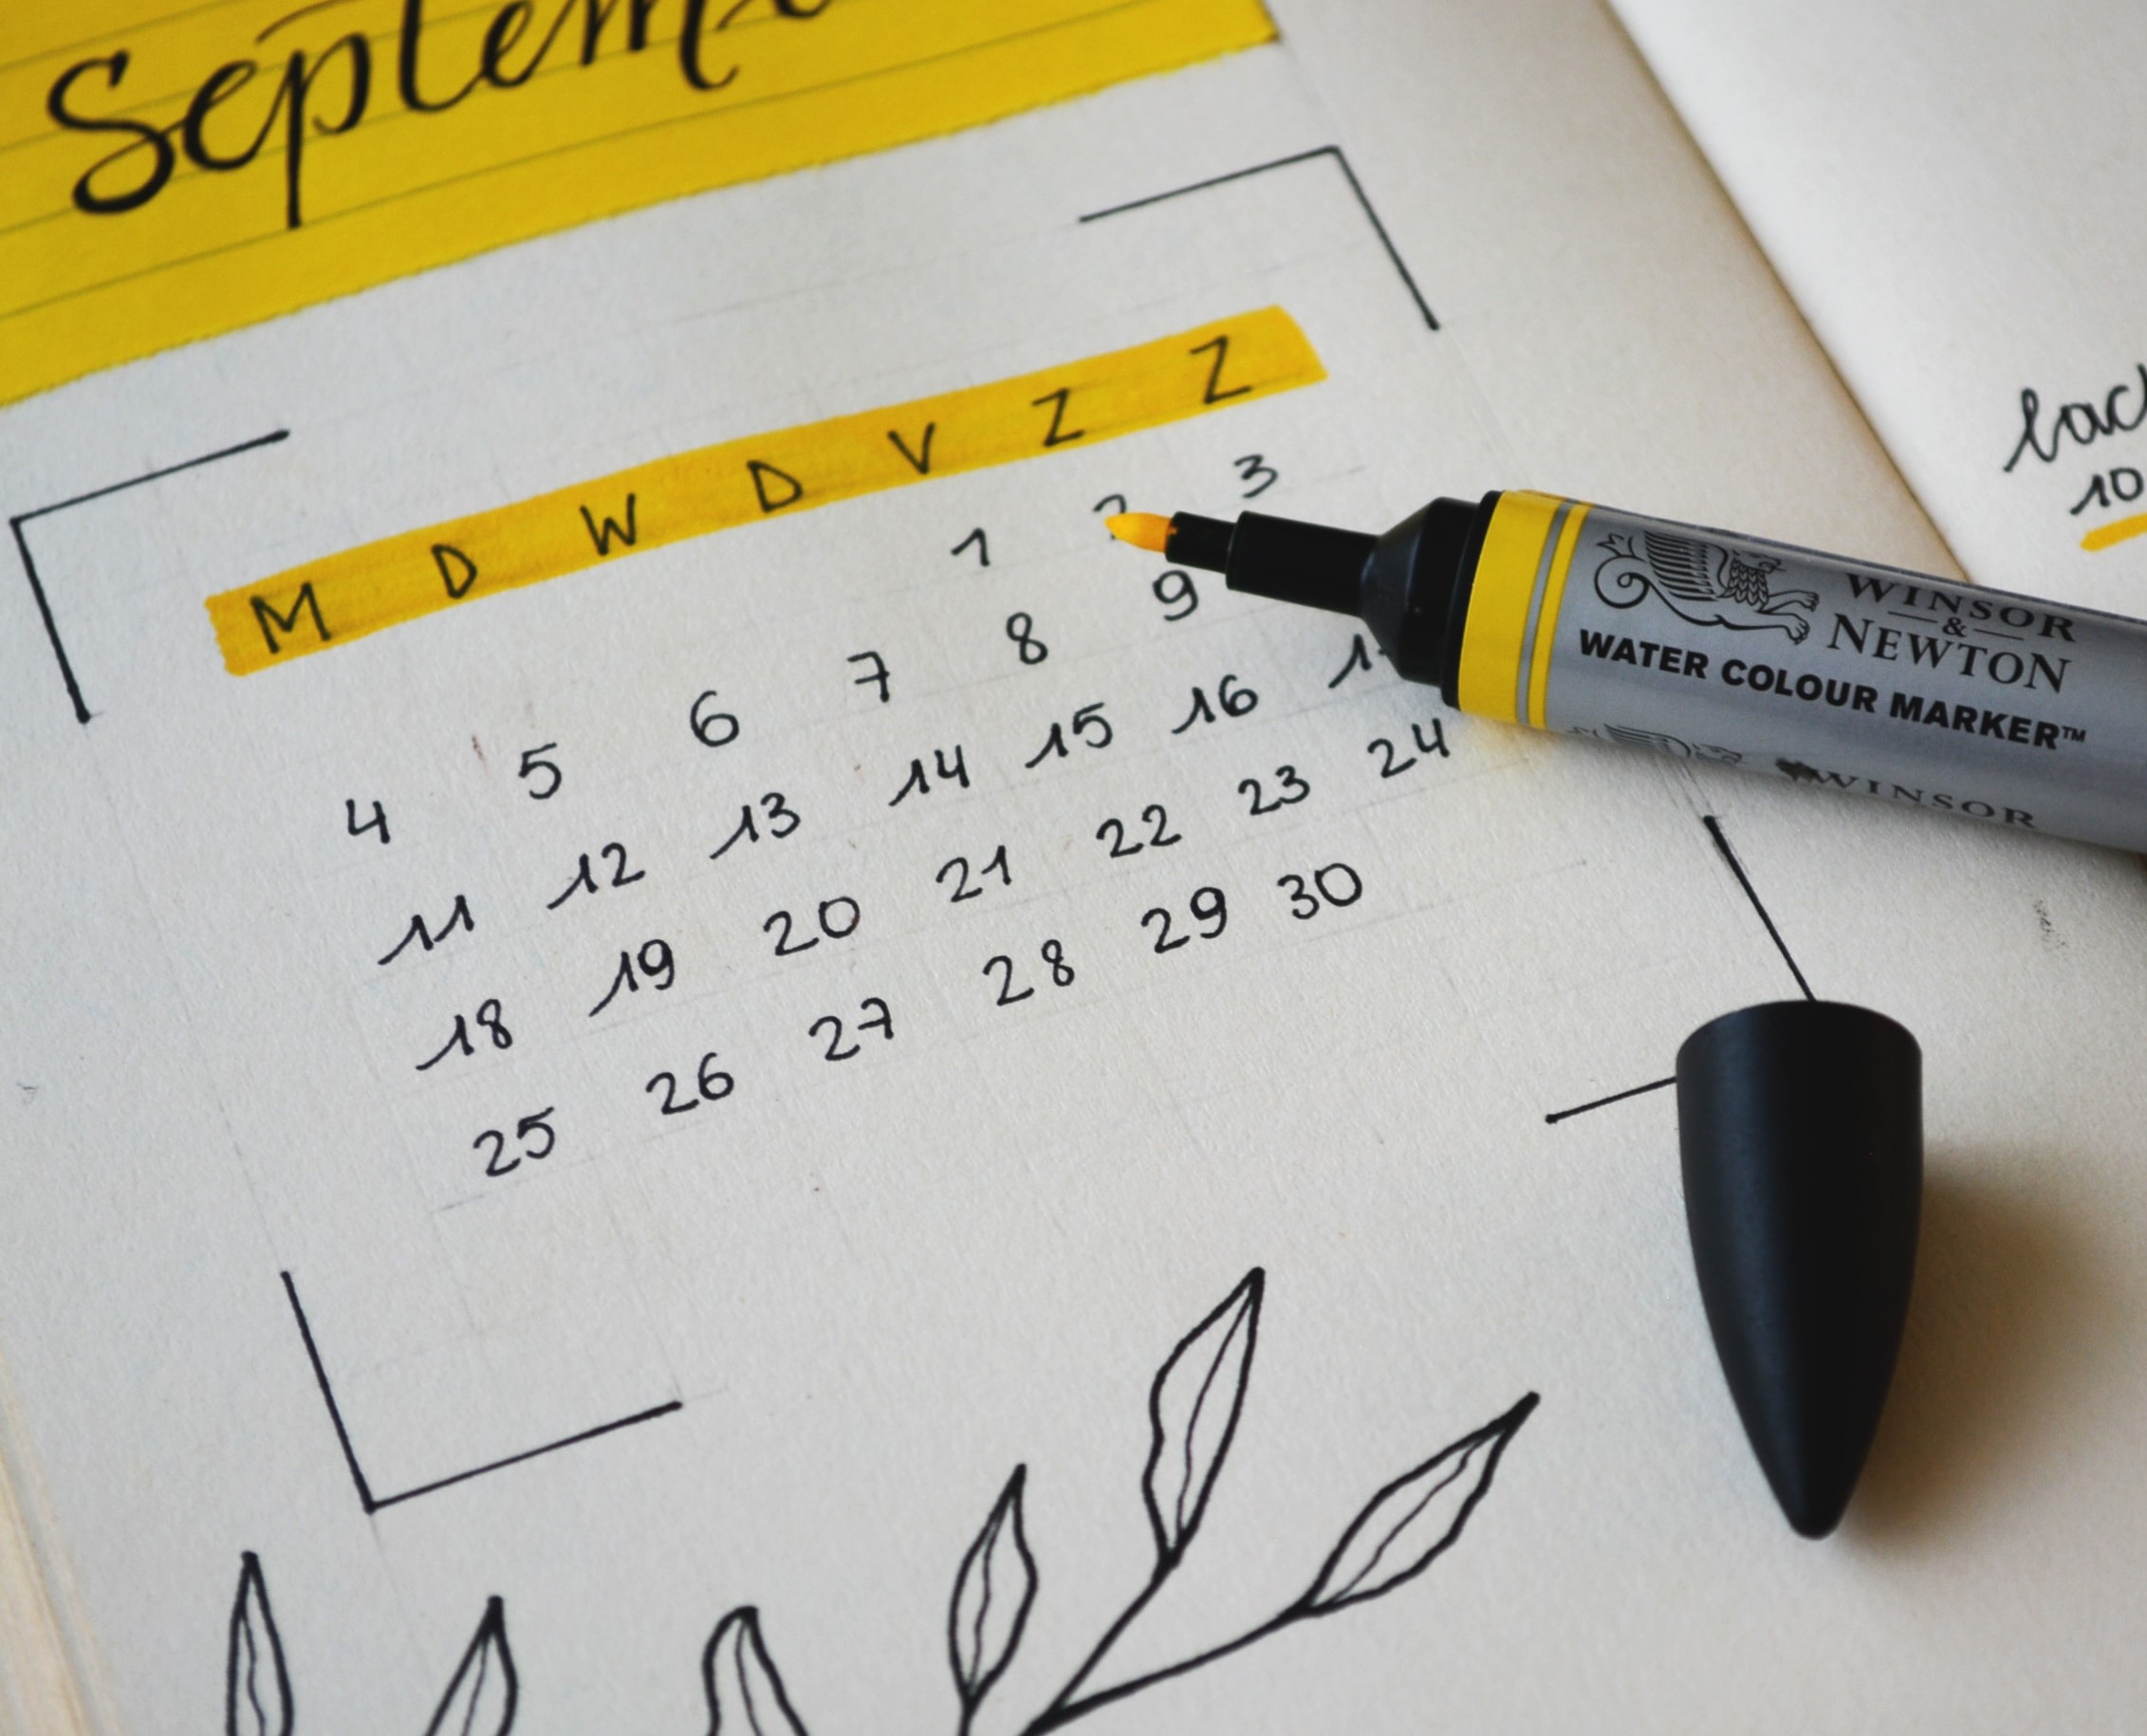 Septem
M D W D V Z Z
1 2 3
4 5 6 7 8 9
11 12 13 14 15 16
18 19 20 21 22 23 24
25 26 27 28 29 30
WINSOR
&
NEWTON
WATER COLOUR MARKER™
WINSOR
10